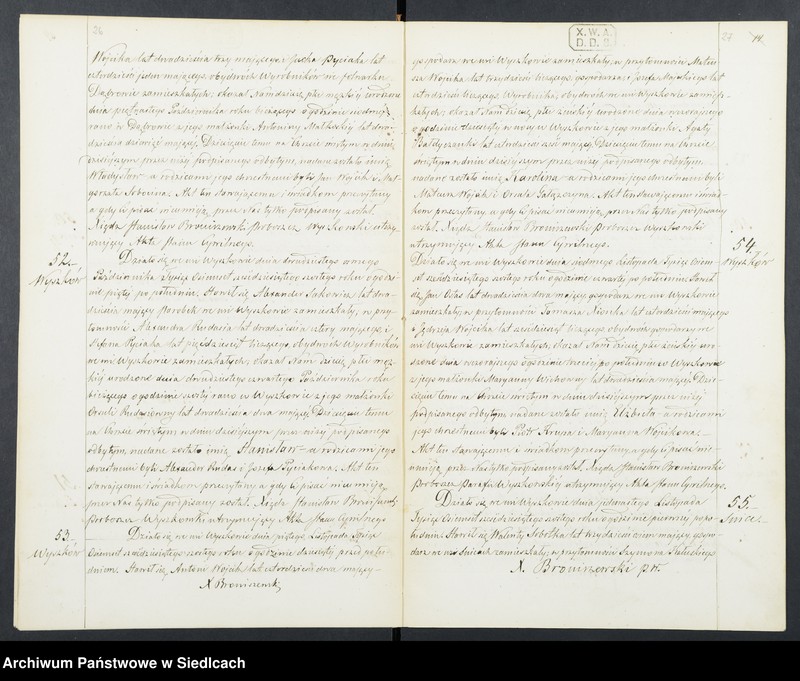 26
Wójcika lat dwadzieścia trzy mającego i Jacka Pyciaka lat
czterdzieści jeden mającego, obydwóch Wyrobników na folwarku
Dąbrowie zamieszkałych, okazał Nam dziecię płci męzkiej urodzone
dnia piętnastego Października roku bieżącego o godzinie
rano w Dąbrowie z jego małżonki Antoniny Małkowskiej lat dwa-
dzieścia dziewięć mającej. Dziecięciu temu na Chrzcie świętym w dniu
dzisiejszym przez niżej podpisanego odbytym, nadane zostało imię
Władysław a rodzicami jego chrzestnemi byli Jan Wójcik i Mał-
gorzata Akt ten stawającemu i świadkom przeczytany
a gdy ci pisać nie umieją, przez Nas tylko podpisany został.
Xiądz Stanisław Broniszewski Proboszcz Wyszkowski utrzy-
mujący Akta Stanu Cywilnego.
52.
Wyszków
Działo się we wsi Wyszkowie dnia dwudziestego
Października Tysiąc Ośmset sześćdziesiątego szóstego roku o godzi-
nie piątej po południu. Stawił się Alexander lat dwa-
dzieścia mający Parobek we wsi Wyszkowie zamieszkały, w przy-
tomności Alexandra Rudasia lat dwadzieścia cztery mającego, i
Stefana Pyciaka lat pięćdziesiąt liczącego, obydwóch Wyrobników
we wsi Wyszkowie zamieszkałych, okazał Nam dziecię płci męz-
kiej urodzone dnia dwudziestego czwartego Października roku
bieżącego o godzinie szóstej rano w Wyszkowie z jego małżonki
Urszuli lat dwadzieścia dwa mającej. Dziecięciu temu
na Chrzcie świętym w dniu dzisiejszym przez niżej podpisanego
odbytym, nadane zostało imię Stanisław a rodzicami jego
chrzestnemi byli Alexander Rudaś i Józefa Pyciakowa. Akt ten
stawającemu i świadkom przeczytany a gdy ci pisać nie umieją
przez Nas tylko podpisany został. Xiądz Stanisław Broniszewski
Proboszcz Wyszkowski utrzymujący Akta Stanu Cywilnego
53.
Wyszków
Działo się we wsi Wyszkowie dnia piątego Listopada Tysiąc
Ośmset sześćdziesiątego szóstego roku o godzinie dziewiątej przed połu-
dniem. Stawił się Antoni Wójcik lat czterdzieści dwa mający
X Broniszewski
X.W.A.
D.D.S.
27 14
gospodarz we wsi Wyszkowie zamieszkały, w przytomności Mateu-
sza Wójcika lat trzydzieści liczącego, gospodarza i Józefa lat
czterdzieści liczącego, Wyrobnika, obydwóch we wsi Wyszkowie zamiesz-
kałych; okazał Nam dziecię płci żeńskiej urodzone dnia wczorajszego
o godzinie dziesiątej w nocy w Wyszkowie z jego małżonki Agaty
lat czterdzieści sześć mającej. Dziecięciu temu na Chrzcie
świętym w dniu dzisiejszym przez niżej podpisanego odbytym,
nadane zostało imię Karolina a rodzicami jego chrzestnemi byli
Mateusz Wójcik i Akt ten stawającemu i świad-
kom przeczytany, a gdy ci pisać nie umieją przez Nas tylko podpisany
został. Xiądz Stanisław Broniszewski Proboszcz Wyszkowski
utrzymujący Akta Stanu Cywilnego.
54.
Wyszków
Działo się we wsi Wyszkowie dnia siódmego Listopada Tysiąc Ośm-
set sześćdziesiątego szóstego roku o godzinie czwartej po południu. Stawił
się Jan lat dwadzieścia dwa mający, gospodarz we wsi Wyszkowie
zamieszkały, w przytomności Tomasza lat czterdzieści mającego
i Jędrzeja Wójcika lat sześćdziesiąt liczącego obydwóch gospodarzy we
wsi Wyszkowie zamieszkałych, okazał Nam dziecię płci żeńskiej uro-
dzone dnia wczorajszego o godzinie trzeciej po południu w Wyszkowie
z jego małżonki Maryanny lat dwadzieścia mającej. Dzie-
cięciu temu na Chrzcie świętym w dniu dzisiejszym przez niżej
podpisanego odbytym nadane zostało imię Elżbieta a rodzicami
jego chrzestnemi byli Piotr i Maryanna Wójcikowa.
Akt ten stawającemu i świadkom przeczytany, a gdy ci pisać nie
umieją, przez Nas tylko podpisany został. Xiądz Stanisław Broniszewski
Proboszcz Parafii Wyszkowskiej utrzymujący Akta Stanu Cywilnego.
55.
Śnice.
Działo się we wsi Wyszkowie dnia jedenastego Listopada
Tysiąc Ośmset sześćdziesiątego szóstego roku o godzinie pierwszej po po-
łudniu. Stawił się Walenty Sobotka lat trzydzieści ośm mający, gospo-
darz we wsi Śnicach zamieszkały, w przytomności Szymona
X. Broniszewski pr.
Archiwum Państwowe w Siedlcach